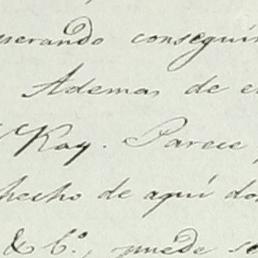 conseguir
Ademas de e
Kay. Parece,
hecho de aquí do
& C.º, puede se